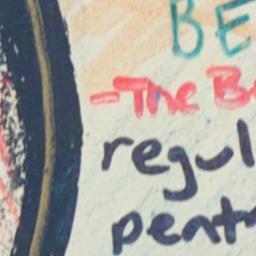 BE
-The B
regul
pent